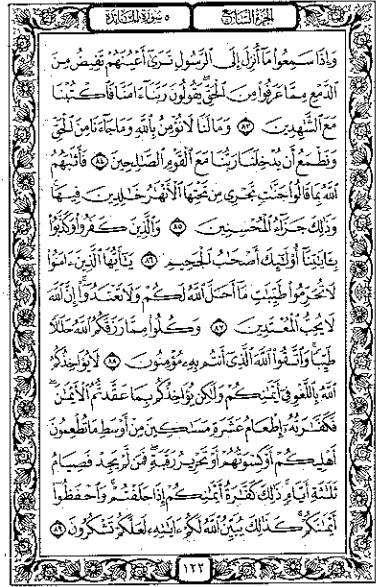 الجزء السابع
٥ سورة المائدة
وَإِذَا سَمِعُوا۟ مَآ أُنزِلَ إِلَى ٱلرَّسُولِ تَرَىٰٓ أَعْيُنَهُمْ تَفِيضُ مِنَ
ٱلدَّمْعِ مِمَّا عَرَفُوا۟ مِنَ ٱلْحَقِّ يَقُولُونَ رَبَّنَآ ءَامَنَّا فَٱكْتُبْنَا
مَعَ ٱلشَّٰهِدِينَ ٨٣ وَمَا لَنَا لَا نُؤْمِنُ بِٱللَّهِ وَمَا جَآءَنَا مِنَ ٱلْحَقِّ
وَنَطْمَعُ أَن يُدْخِلَنَا رَبُّنَا مَعَ ٱلْقَوْمِ ٱلصَّٰلِحِينَ ٨٤ فَأَثَٰبَهُمُ
ٱللَّهُ بِمَا قَالُوا۟ جَنَّٰتٍ تَجْرِى مِن تَحْتِهَا ٱلْأَنْهَٰرُ خَٰلِدِينَ فِيهَا
وَذَٰلِكَ جَزَآءُ ٱلْمُحْسِنِينَ ٨٥ وَٱلَّذِينَ كَفَرُوا۟ وَكَذَّبُوا۟
بِـَٔايَٰتِنَآ أُو۟لَٰٓئِكَ أَصْحَٰبُ ٱلْجَحِيمِ ٨٦ يَٰٓأَيُّهَا ٱلَّذِينَ ءَامَنُوا۟
لَا تُحَرِّمُوا۟ طَيِّبَٰتِ مَآ أَحَلَّ ٱللَّهُ لَكُمْ وَلَا تَعْتَدُوٓا۟ إِنَّ ٱللَّهَ
لَا يُحِبُّ ٱلْمُعْتَدِينَ ٨٧ وَكُلُوا۟ مِمَّا رَزَقَكُمُ ٱللَّهُ حَلَٰلًا
طَيِّبًا وَٱتَّقُوا۟ ٱللَّهَ ٱلَّذِىٓ أَنتُم بِهِۦ مُؤْمِنُونَ ٨٨ لَا يُؤَاخِذُكُمُ
ٱللَّهُ بِٱللَّغْوِ فِىٓ أَيْمَٰنِكُمْ وَلَٰكِن يُؤَاخِذُكُم بِمَا عَقَّدتُّمُ ٱلْأَيْمَٰنَ
فَكَفَّٰرَتُهُۥٓ إِطْعَامُ عَشَرَةِ مَسَٰكِينَ مِنْ أَوْسَطِ مَا تُطْعِمُونَ
أَهْلِيكُمْ أَوْ كِسْوَتُهُمْ أَوْ تَحْرِيرُ رَقَبَةٍ فَمَن لَّمْ يَجِدْ فَصِيَامُ
ثَلَٰثَةِ أَيَّامٍ ذَٰلِكَ كَفَّٰرَةُ أَيْمَٰنِكُمْ إِذَا حَلَفْتُمْ وَٱحْفَظُوٓا۟
أَيْمَٰنَكُمْ كَذَٰلِكَ يُبَيِّنُ ٱللَّهُ لَكُمْ ءَايَٰتِهِۦ لَعَلَّكُمْ تَشْكُرُونَ ٨٩
١٢٢